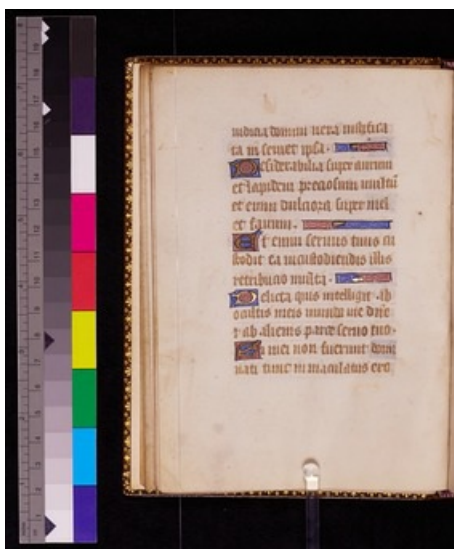 iudicia domini vera iustifica
ta in semet ipsa.
Desiderabilia super aurum
et lapidem preciosum multū
et enim dulciora super mel
et fauum.
Et enim seruus tuus cu
stodit ea in custodiendis illis
retribucio multa.
Delicta quis intelligit ab
ocultis meis munda me dn̄e
et ab alienis parce seruo tuo.
mei non fuerunt domi
nati tunc inmaculatus ero